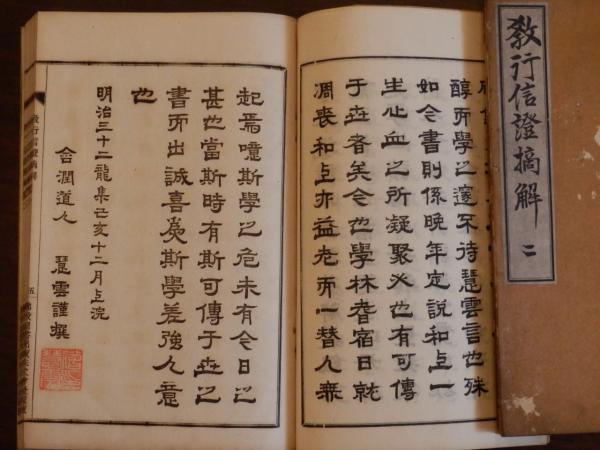 教行信證摘解 二
醇而學之邃不待慧雲言也殊
如今書則係晚年定說和上一
生心血之所凝聚也有可傳
于世者矣今也學林耆宿日就
凋喪和上亦益老而一替人無
起焉噫斯學之危未有今日之
甚也當斯時有斯可傳于世之
書而出誠喜爲斯學差強人意
也
明治三十二龍集己亥十二月上浣
潤道人 慧雲謹撰
五